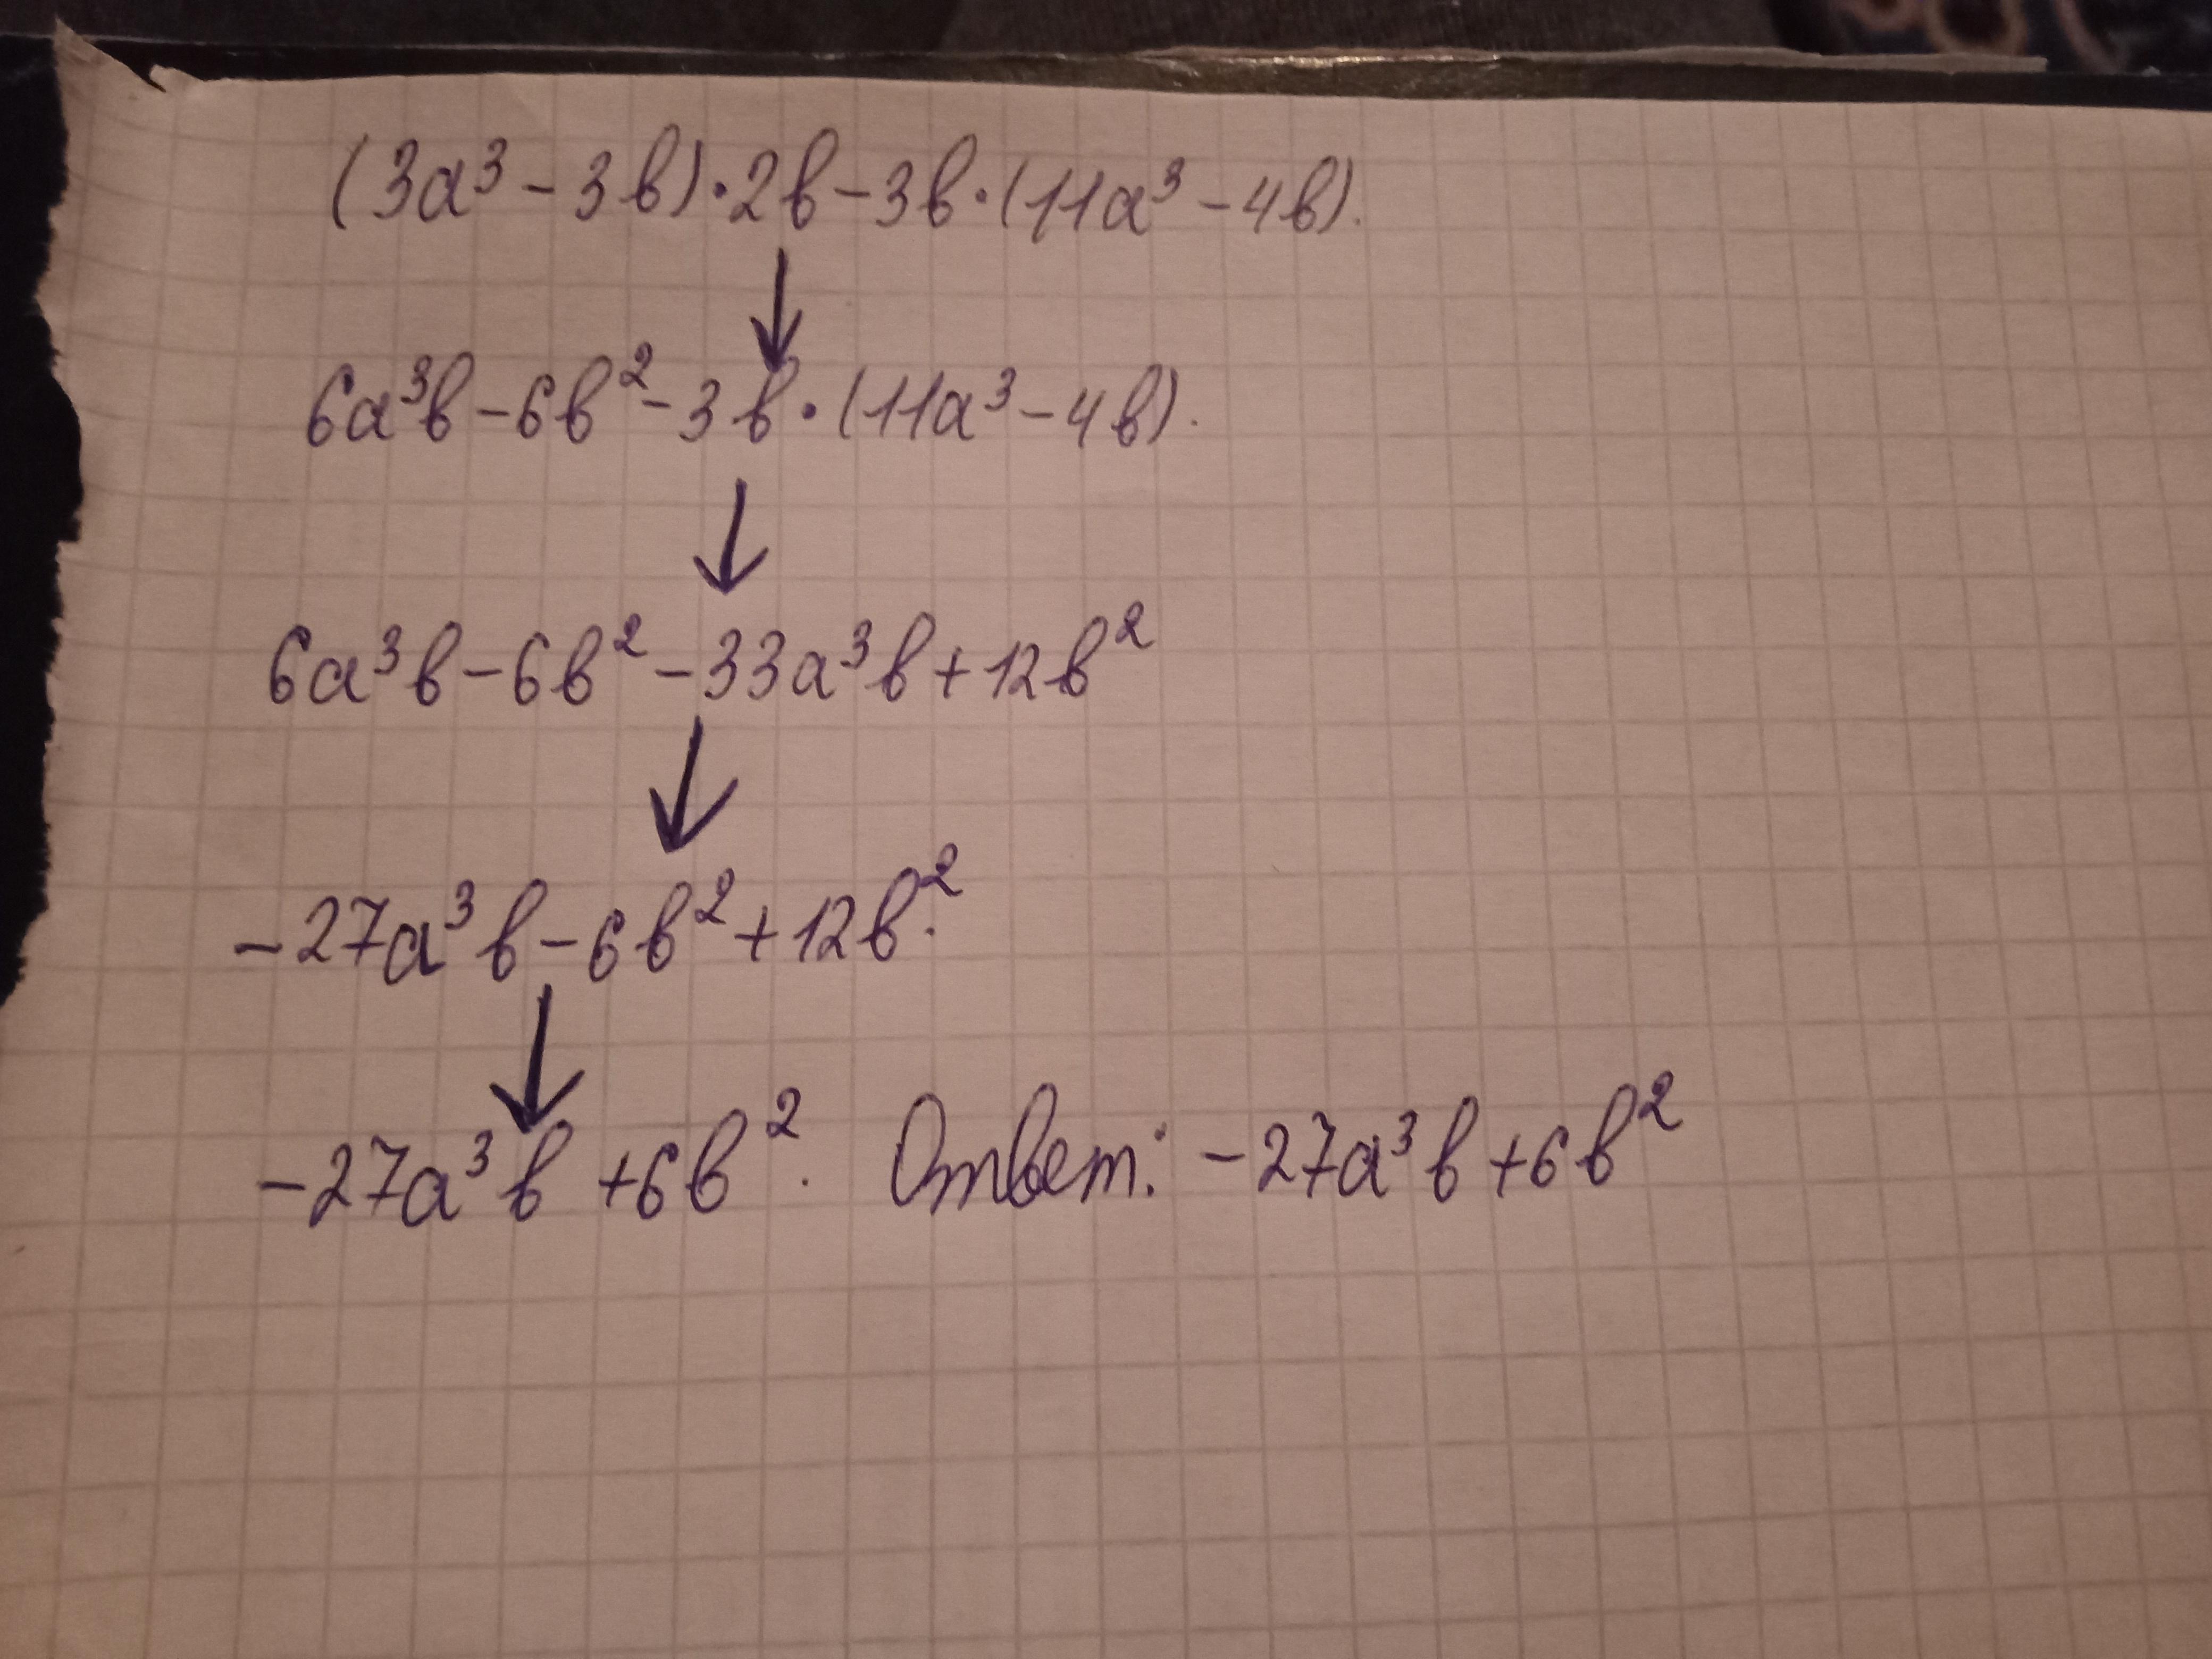 (3a³ - 3b)·2b - 3b·(11a³ - 4b).
6a³b - 6b² - 3b·(11a³ - 4b).
6a³b - 6b² - 33a³b + 12b²
-27a³b - 6b² + 12b².
-27a³b + 6b². Ответ: -27a³b + 6b²